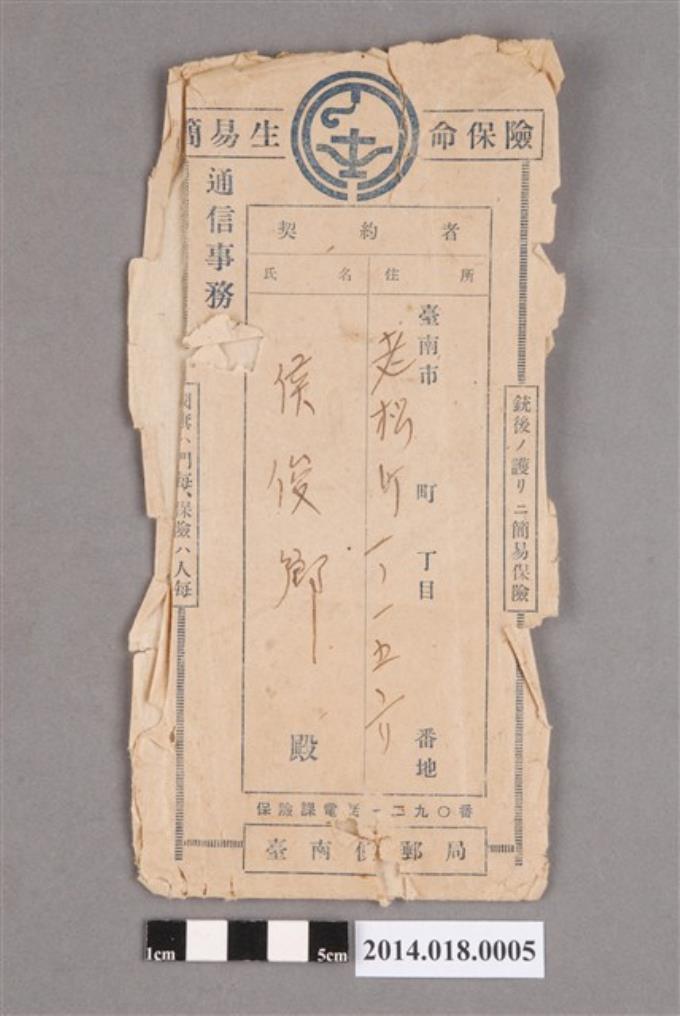 簡易生命保險
通信事務
契約者
氏名 住所
臺南市 町 丁目 番地
老松町一ノ一五六
侯俊鄉
殿
銃後ノ護リニ簡易保險
國旗ハ門每、保險ハ人每
保險課電話一二九〇番
臺南便郵局
1cm 5cm
2014.018.0005